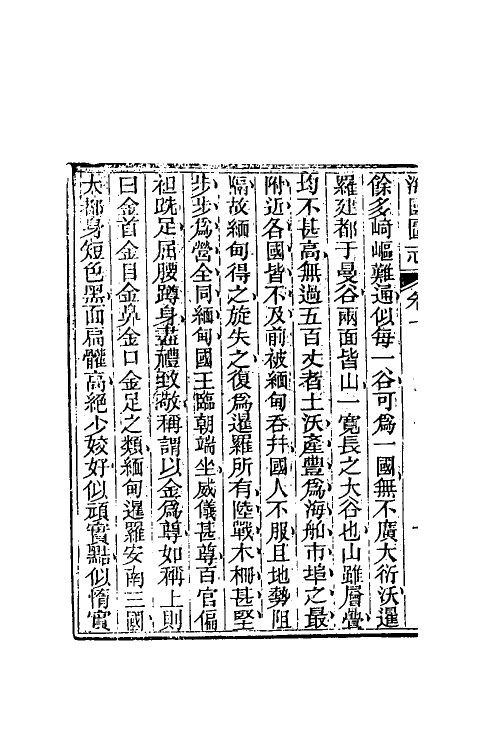 海國圖志 卷
餘多崎嶇難通似每一谷可爲一國無不廣大衍沃暹
羅建都于曼谷兩面皆山一寬長之大谷也山雖層疊
均不甚高無過五百丈者土沃產豐爲海舶市埠之最
附近各國皆不及前被緬甸吞并國人不服且地勢阻
隔故緬甸得之旋失之復爲暹羅所有陸戰木柵甚堅
步步爲營全同緬甸國王臨朝端坐威儀甚尊百官偏
袒跣足屈腰蹲身盡禮致敬稱謂以金爲尊如稱上則
曰金首金目金鼻金口金足之類緬甸暹羅安南三國
大都身短色黑面扁髏高絕少姣好似頑實黠似惰實